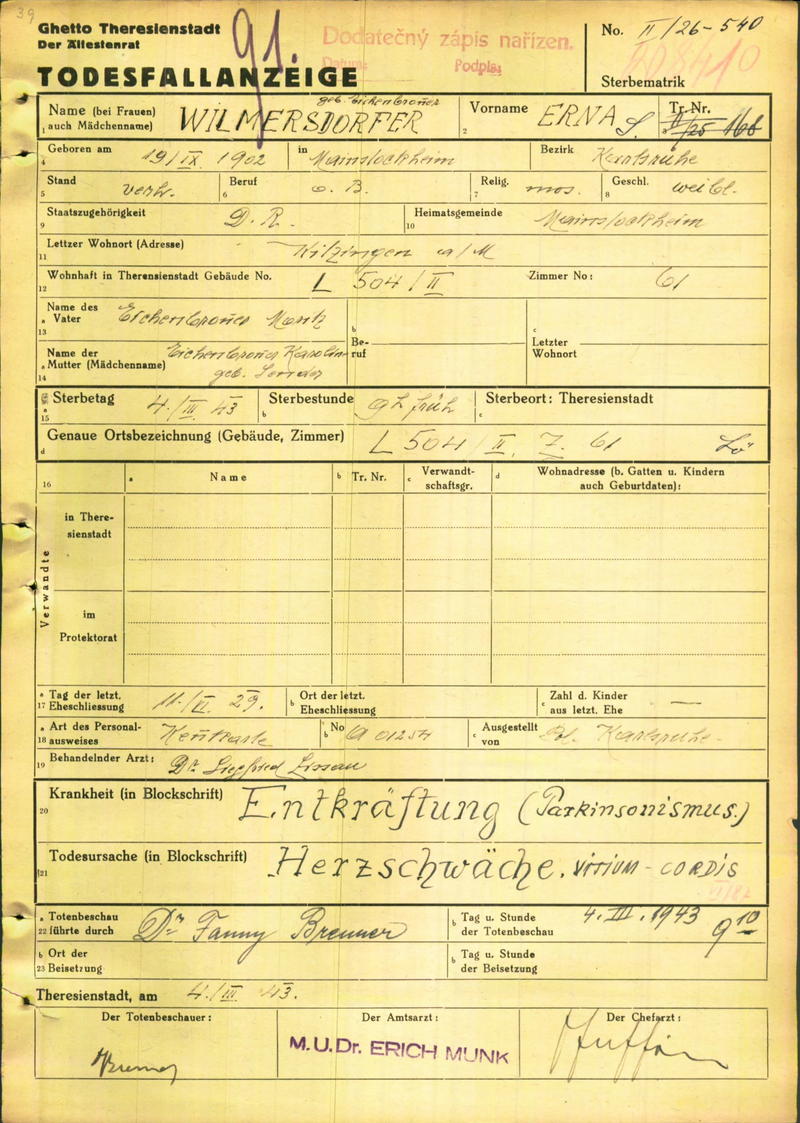 39
Ghetto Theresienstadt
Der Ältestenrat
TODESFALLANZEIGE
91.
Dodatečný zápis nařízen.
Datum: Podpis:
No. II/26-540
Sterbematrik
Name (bei Frauen) geb. Eichenbronner
1 auch Mädchenname) WILMERSDORFER
Vorname ERNA S.
2
Tr. Nr.
3 II/25 168
Geboren am 19/IX. 1902 in Mainstockheim Bezirk Karlsruhe
4
Stand verh. Beruf o. B. Relig. mos. Geschl. weibl.
5 6 7 8
Staatszugehörigkeit D. R. Heimatsgemeinde Mainstockheim
9 10
Lettzer Wohnort (Adresse) Kitzingen a/M
11
Wohnhaft in Theresienstadt Gebäude No. L 504/II Zimmer No: 61
12
Name des
a Vater Eichenbronner Moritz
13
b Be-ruf
c Letzter Wohnort
Name der Eichenbronner Karolin
a Mutter (Mädchenname) geb.
14
Sterbetag 4./III. 43 Sterbestunde 9h früh Sterbeort: Theresienstadt
a 15 b c
Genaue Ortsbezeichnung (Gebäude, Zimmer) L 504/II Z. 61
d
16 a Name b Tr. Nr. c Verwandt-schaftsgr. d Wohnadresse (b. Gatten u. Kindern auch Geburtdaten):
Verwandte
in There-
sienstadt
im
Protektorat
a Tag der letzt.
17 Eheschliessung 29.
b Ort der letzt.
Eheschliessung
c Zahl d. Kinder
aus letzt. Ehe —
a Art des Personal-
18 ausweises Kennkarte
b No A 01254
c Ausgestellt
von Pol. Karlsruhe
19 Behandelnder Arzt: Dr. Siegfried Lissau
Krankheit (in Blockschrift) Entkräftung (Parkinsonismus.)
20
Todesursache (in Blockschrift) Herzschwäche. VITIUM - CORDIS
21
a Totenbeschau
22 führte durch Dr Fanny Brenner
b Tag u. Stunde
der Totenbeschau 4. III. 1943 9 10
b Ort der
23 Beisetzung
b Tag u. Stunde
der Beisetzung
Theresienstadt, am 4./III. 43.
Der Totenbeschauer: Der Amtsarzt: Der Chefarzt:
Brenner
M.U.Dr. ERICH MUNK